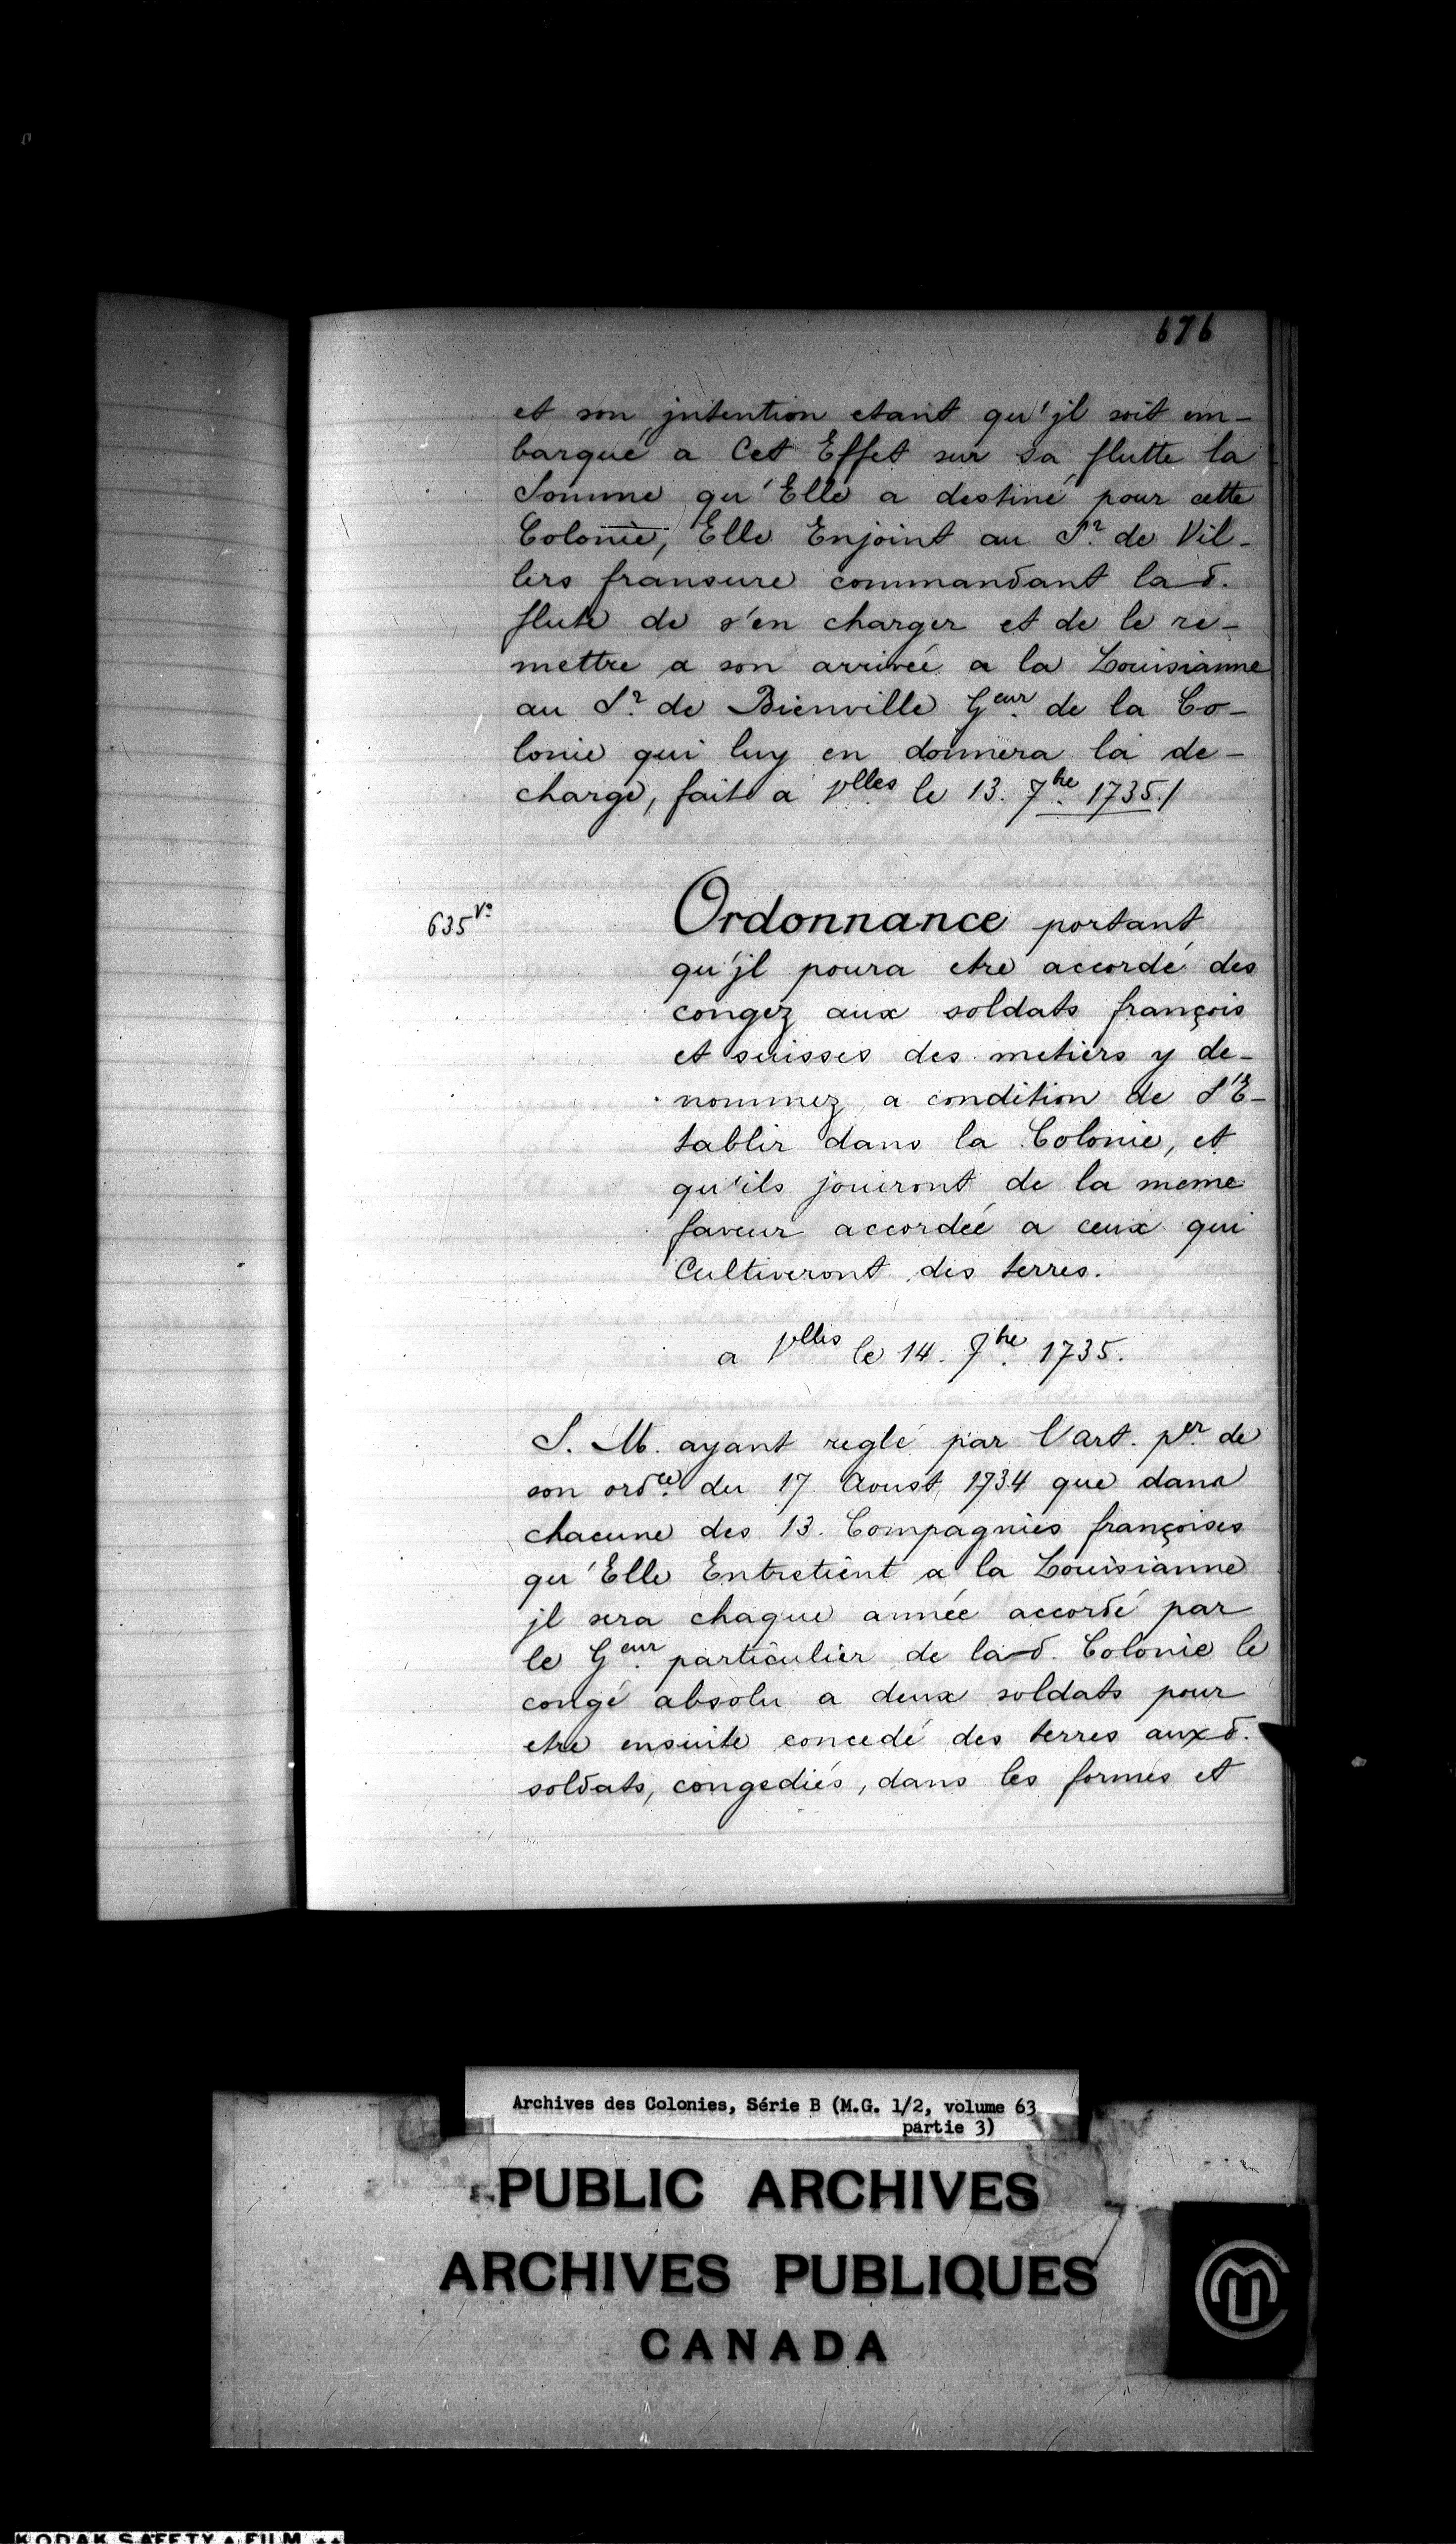 676
et son jntention etant qu'jl soit em-
barqué a Cet Effet sur sa flutte la
Somme qu'Elle a destiné pour cette
Colonie, Elle Enjoint au Sr. de Vil-
lers fransure commandant la d.
flute de s'en charger et de le re-
mettre a son arrivée a la Louisianne
au Sr. de Bienville Geur. de la Co-
lonie qui luy en donnera la de-
charge, fait a Vlles le 13. 7bre. 1735./
635 Vo
Ordonnance portant
qu'jl poura etre accordé des
congez aux soldats françois
et suisses des metiers y de-
nommez, a condition de S'E-
tablir dans la Colonie, et
qu'ils jouiront de la meme
faveur accordée a ceux qui
Cultiveront des terres.
a Vlles le 14. 7bre. 1735.
S. M. ayant reglé par l'art. per. de
son ordce. du 17 Aoust 1734 que dans
chacune des 13. Compagnies françoises
qu'Elle Entretient a la Louisianne
jl sera chaque année accordé par
le Geur. particulier de la d. Colonie le
congé absolu a deux soldats pour
etre ensuite concedé des terres aux d.
soldats, congediés, dans les formes et
Archives des Colonies, Série B (M.G. 1/2, volume 63
partie 3)
PUBLIC ARCHIVES
ARCHIVES PUBLIQUES
CANADA
KODAK SAFETY FILM